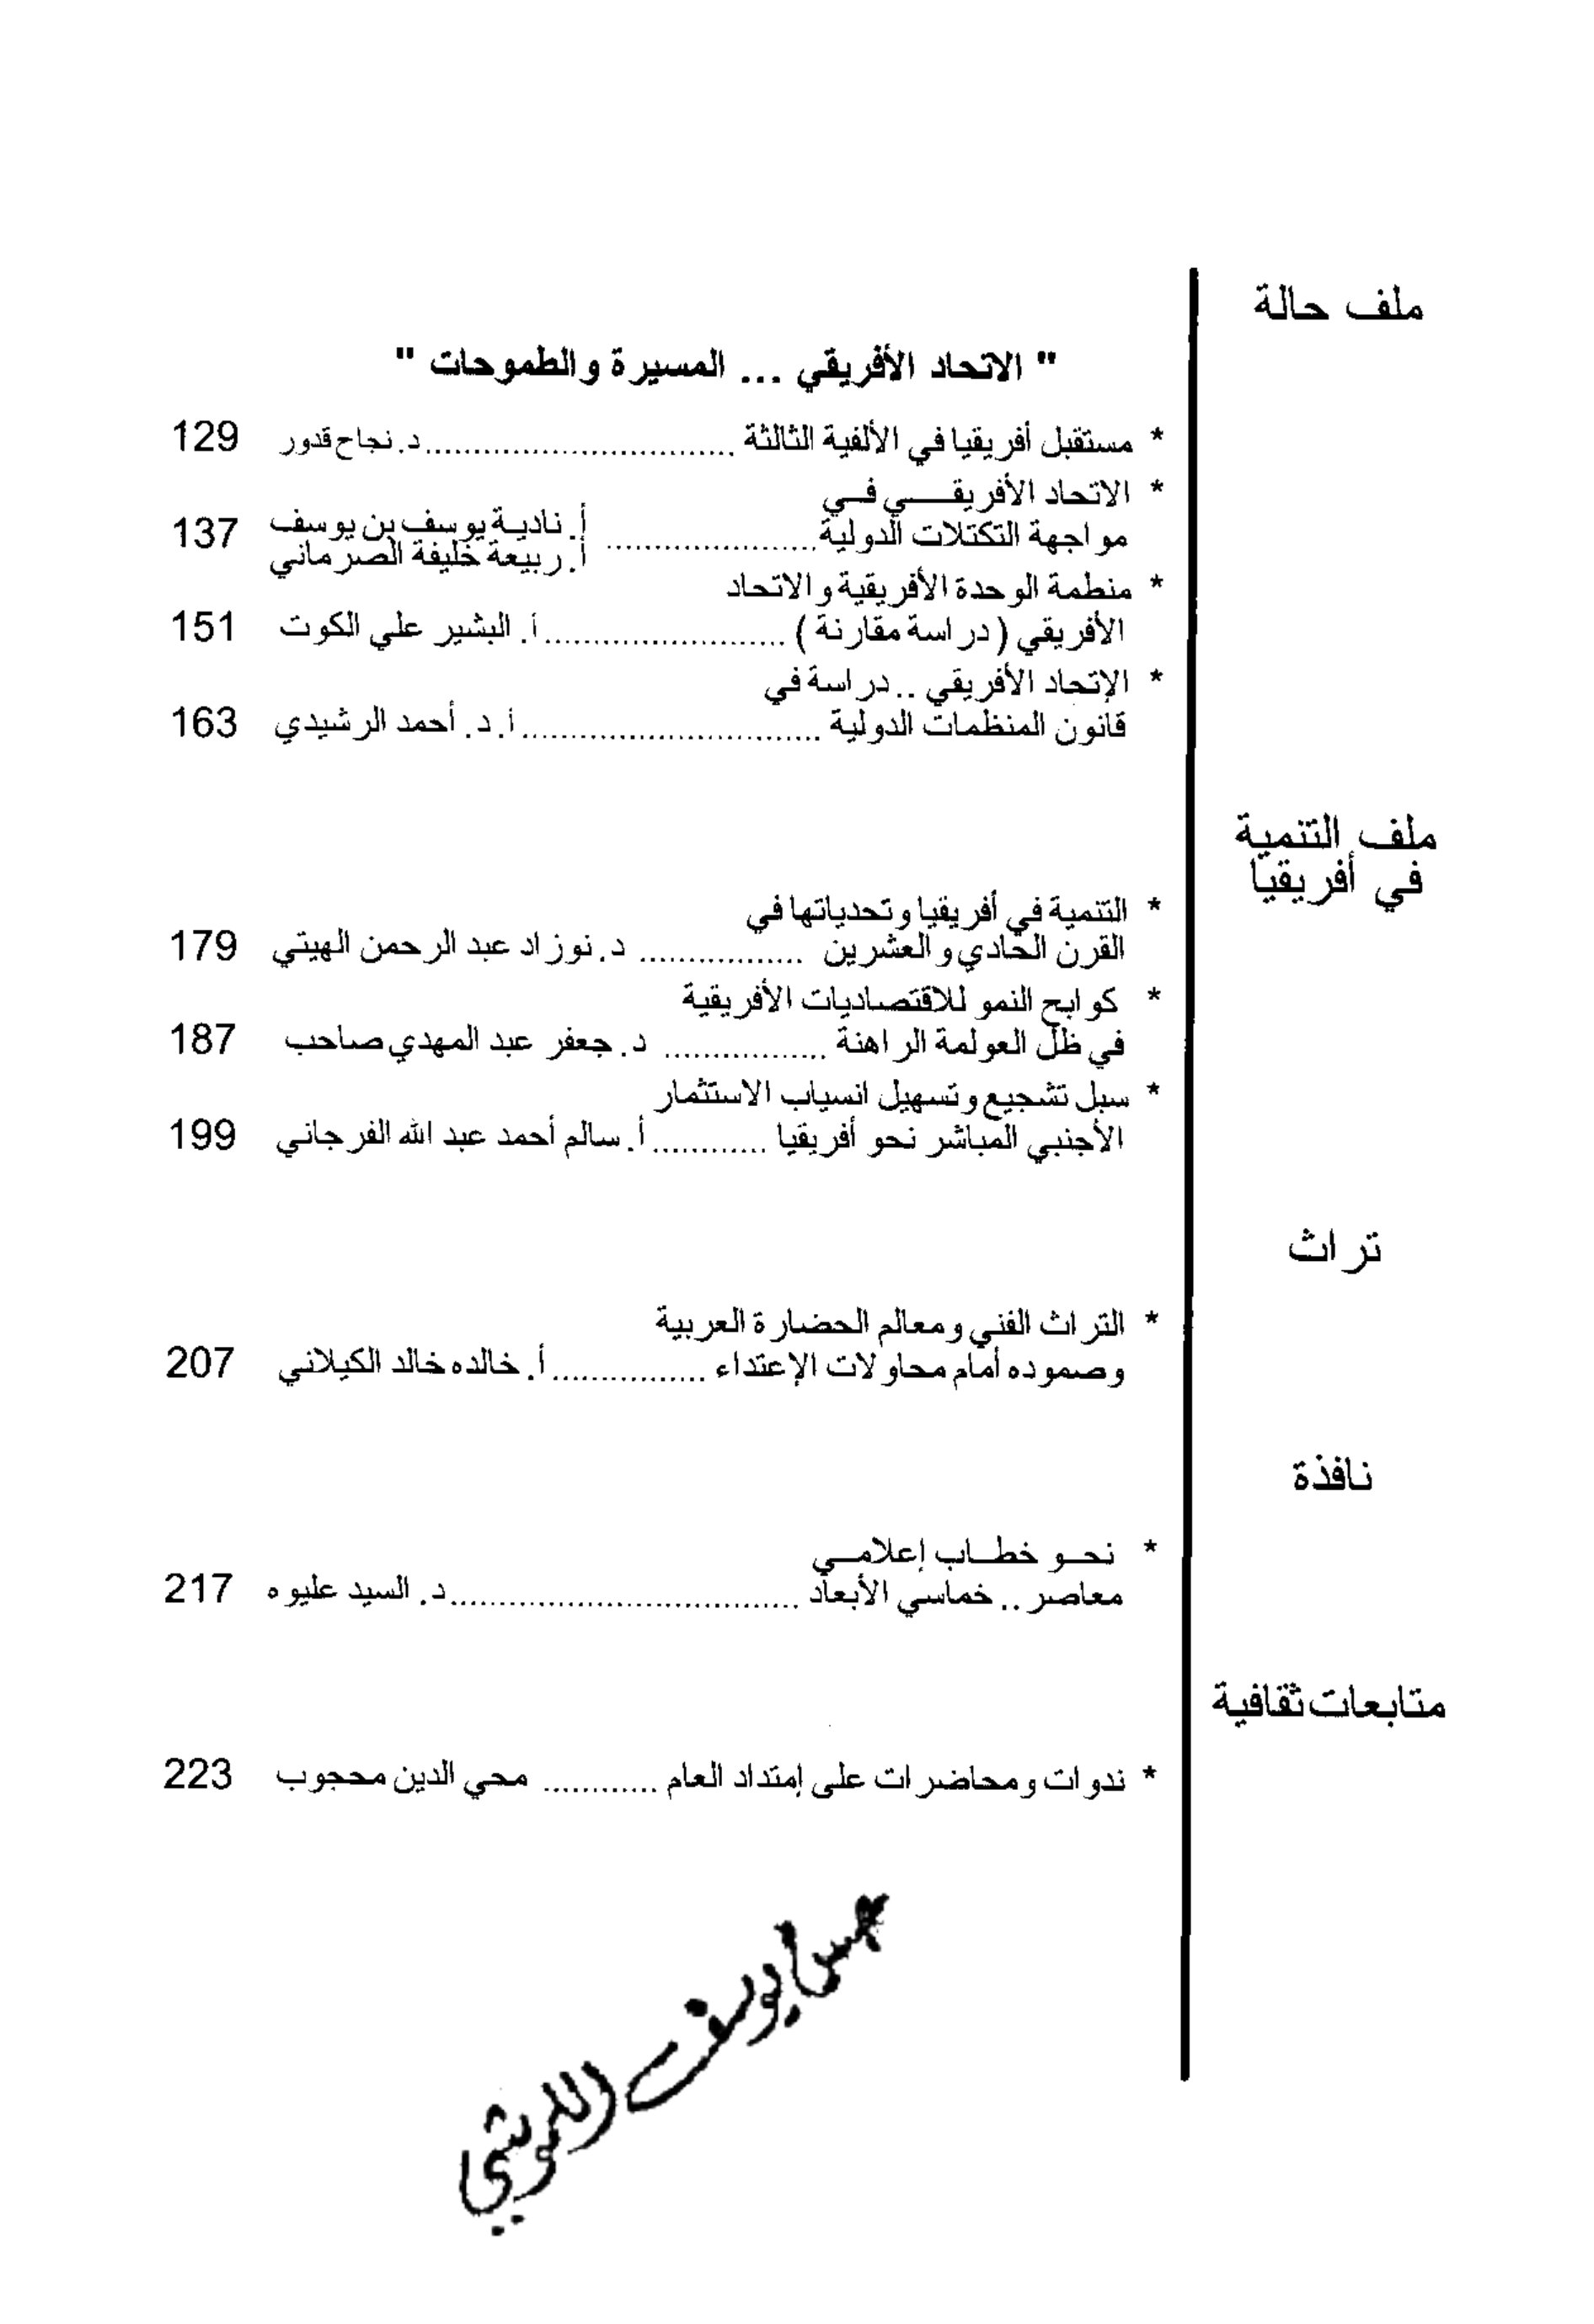 ملف حالة
" الاتحاد الأفريقي ... المسيرة والطموحات "
* مستقبل أفريقيا في الألفية الثالثة ............................... د. نجاح قدور 129
* الاتحاد الأفريقـــي فـي
مواجهة التكتلات الدولية ..................... أ. ناديـة يوسف بن يوسف 137
أ. ربيعة خليفة الصرماني
* منطمة الوحدة الأفريقية والاتحاد
الأفريقي ( دراسة مقارنة ) ........................ أ. البشير علي الكوت 151
* الإتحاد الأفريقي .. دراسة في
قانون المنظمات الدولية .............................. أ.د. أحمد الرشيدي 163
ملف التنمية
في أفريقيا
* التنمية في أفريقيا وتحدياتها في
القرن الحادي والعشرين ................ د. نوزاد عبد الرحمن الهيتي 179
* كوابح النمو للاقتصاديات الأفريقية
في ظل العولمة الراهنة ................ د. جعفر عبد المهدي صاحب 187
* سبل تشجيع وتسهيل انسياب الاستثمار
الأجنبي المباشر نحو أفريقيا ............ أ. سالم أحمد عبد الله الفرجاني 199
تراث
* التراث الفني ومعالم الحضارة العربية
وصموده أمام محاولات الإعتداء ................ أ. خالده خالد الكيلاني 207
نافذة
* نحـو خطـاب إعلامـي
معاصر .. خماسي الأبعاد ................................... د. السيد عليوه 217
متابعات ثقافية
* ندوات ومحاضرات على إمتداد العام ............ محي الدين محجوب 223
يوسف